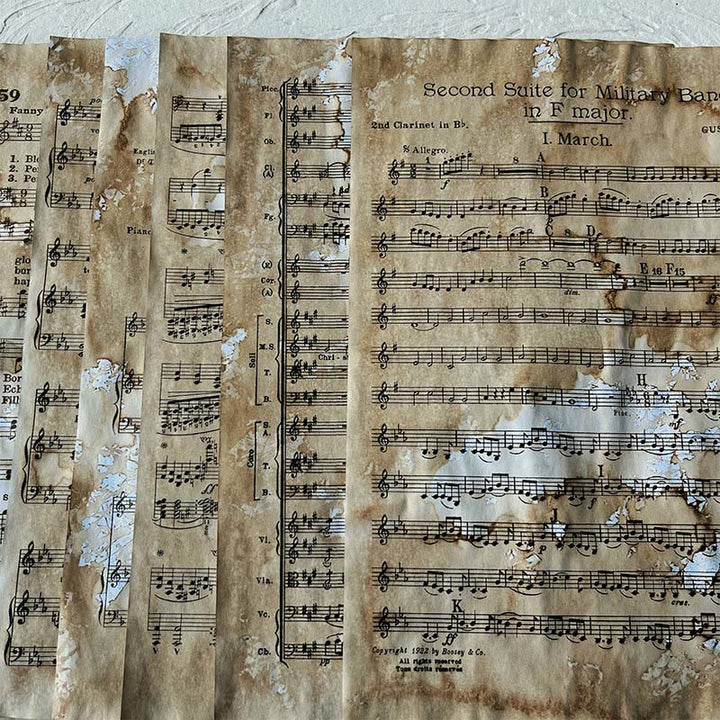 59
Fanny
1. Bl
2. Pe
3. Pe
glo
bur
ha
Bor
Ech
Fill
Englis
Piano
Picc.
Fl.
Ob.
Cl.
(A)
Fg.
(E)
Cor.
(A)
S.
M.S.
Soli
T.
Chri - s
B.
S.
A.
Coro
T.
B.
Vl.
Vla.
Vc.
Cb.
pp
Second Suite for Military Ban
in F major.
2nd Clarinet in B♭.
I. March.
GUS
Allegro.
1
8
A
f
B
C
8
D
dim.
E 16 F 15
H
Fine.
mf
I
f
J
p
cresc.
K
ff
Copyright 1922 by Boosey & Co.
All rights reserved
Tous droits réservés